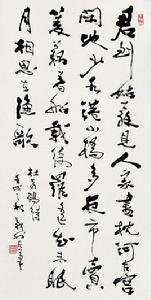 君到姑蘇見人家盡枕河古宮
閒地少水港小橋多夜市賣
菱藕春船載綺羅遙知未眠
月相思在漁歌
杜荀鶴詩